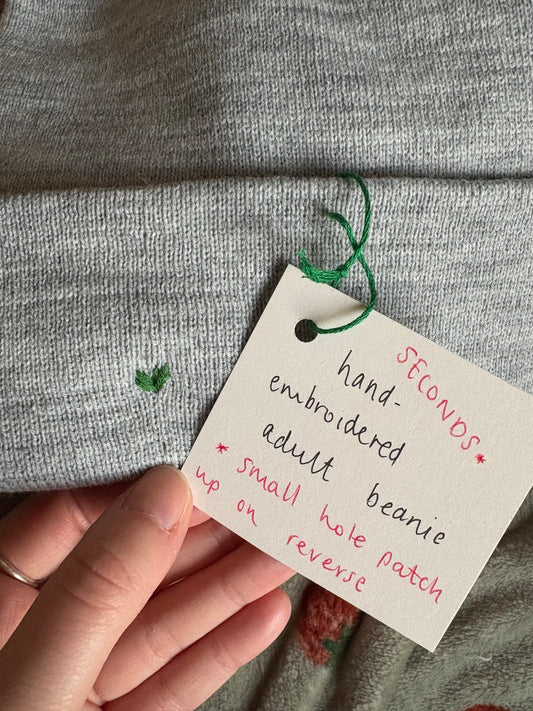 SECONDS *
hand-
embroidered
adult beanie
* small hole patch
up on reverse